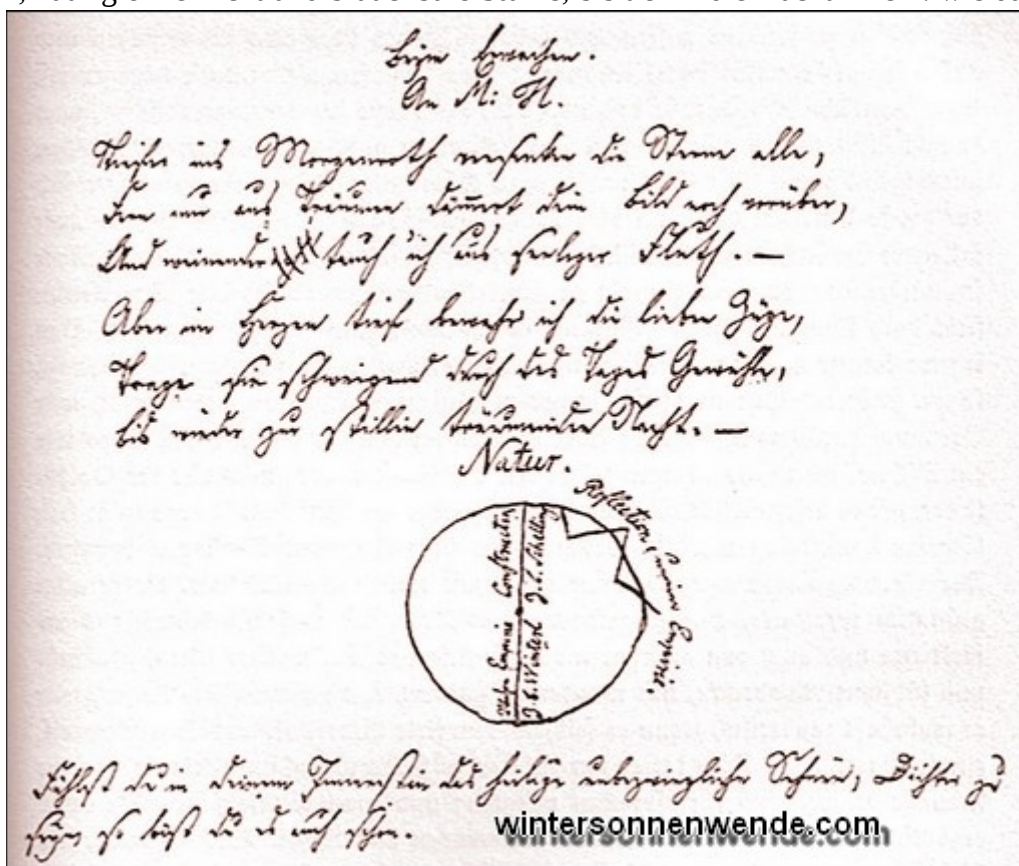 Beym Erwachen.
An M. H.
Tiefer ins Morgenroth versinken die Sterne alle,
Fern nur aus Träumen dämert dein Bild noch vorüber,
Und weinender tauch ich aus seeliger Fluth. —
Aber im Herzen tief bewahr ich die lieben Züge,
Trage sie schweigend durch des Tages Gewühle,
Bis wieder zur stillen träumenden Nacht. —
Natur.
Reflections
unserer
Zeitgeist
Construction
J. J. Winterl J. Schelling
Fühlst du in deinem Innersten das heilige unbezwingliche Sehnen, Dichter zu
seyn so bist du es auch schon.
wintersonnenwende.com